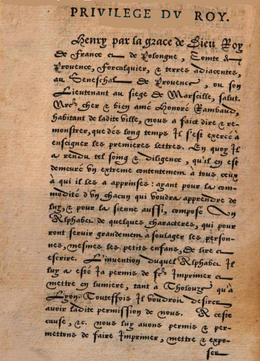 PRIVILEGE DV ROY.
Henry par la grace de Dieu Roy
de France & de Pologne, Comte de
Prouence, Forcalquier, & terres adiacentes,
au Seneschal de Prouence, ou son
Lieutenant au siege de Marseille, salut.
cher & bien amé Honoré Rambaud,
habitant de ladite ville, nous a fait dire & re-
monstrer, que dés long temps il s'est exercé à
enseigner les premieres lettres. En quoy il
a rendu tel soing & diligence, qu'il en est
demeuré vn extreme contentement à tous ceux
à qui il les a apprinses: ayant pour la com-
modité d'vn chacun qui voudra apprendre de
luy, & pour la sienne aussi, composé vn
Alphabet de quelques characteres, qui pour
ront seruir grandement à soulager les person-
nes, mesmes les petits enfans, de lire &
escrire. L'inuention duquel Alphabet Il
luy a esté Ia permis de Imprimer &
mettre en lumiere, tant à Tholouze qu'à
Lyon. Toutesfois Il voudroit desirer
auoir ladite permission de nous. A ceste
cause, & nous luy auons permis & per-
mettons de faire Imprimer, mettre & expo-
ser